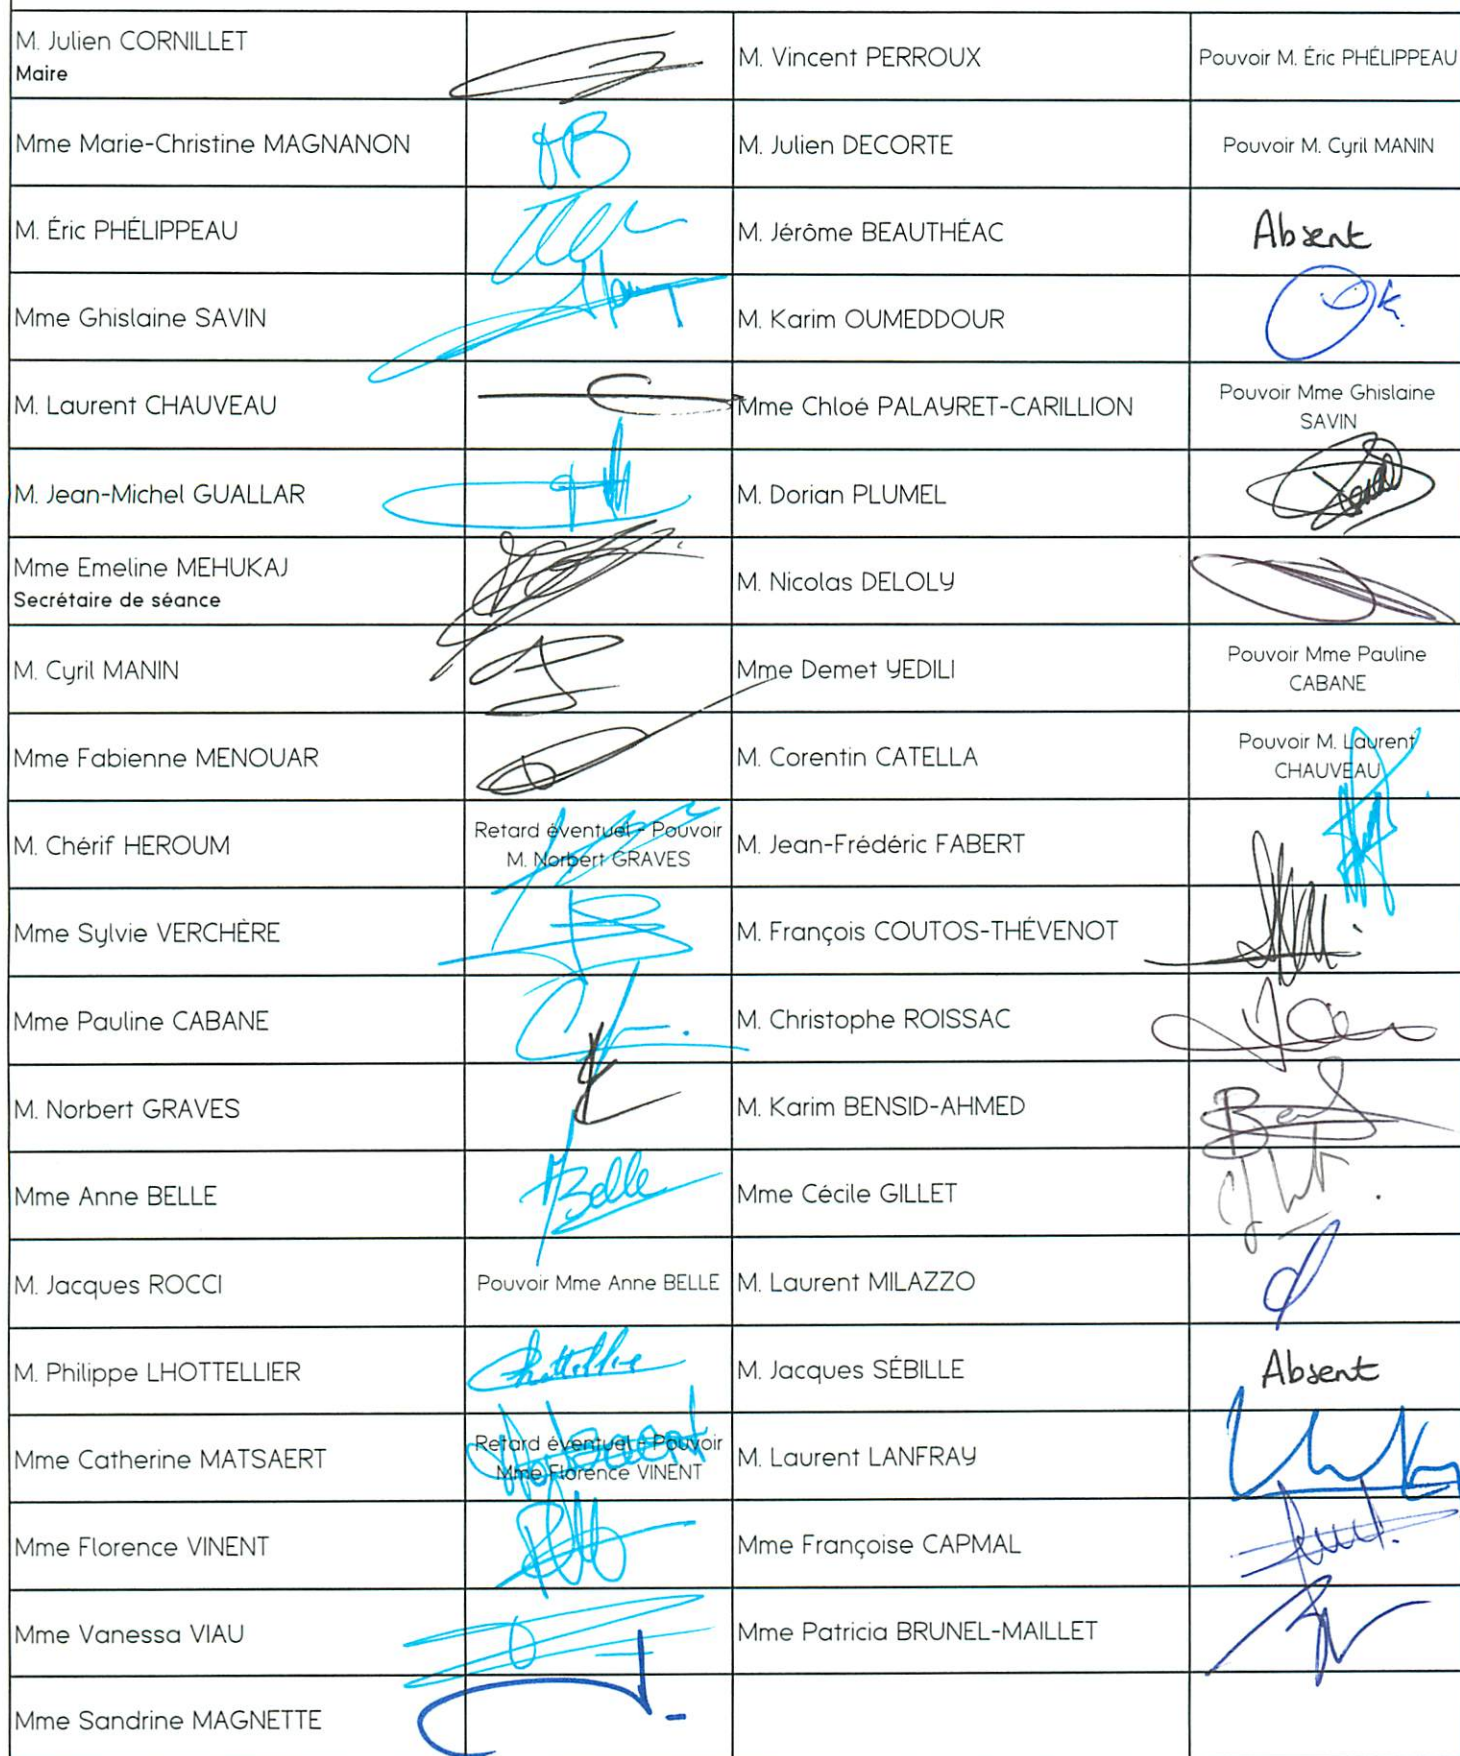 M. Julien CORNILLET
Maire
M. Vincent PERROUX
Pouvoir M. Éric PHÉLIPPEAU
Mme Marie-Christine MAGNANON
M. Julien DECORTE
Pouvoir M. Cyril MANIN
M. Éric PHÉLIPPEAU
M. Jérôme BEAUTHÉAC
Absent
Mme Ghislaine SAVIN
M. Karim OUMEDDOUR
Ok
M. Laurent CHAUVEAU
Mme Chloé PALAYRET-CARILLION
Pouvoir Mme Ghislaine
SAVIN
M. Jean-Michel GUALLAR
M. Dorian PLUMEL
Mme Emeline MEHUKAJ
Secrétaire de séance
M. Nicolas DELOLY
M. Cyril MANIN
Mme Demet YEDILI
Pouvoir Mme Pauline
CABANE
Mme Fabienne MENOUAR
M. Corentin CATELLA
Pouvoir M. Laurent
CHAUVEAU
M. Chérif HEROUM
Retard éventuel - Pouvoir
M. Norbert GRAVES
M. Jean-Frédéric FABERT
Mme Sylvie VERCHÈRE
M. François COUTOS-THÉVENOT
Mme Pauline CABANE
M. Christophe ROISSAC
M. Norbert GRAVES
M. Karim BENSID-AHMED
Mme Anne BELLE
Belle
Mme Cécile GILLET
M. Jacques ROCCI
Pouvoir Mme Anne BELLE
M. Laurent MILAZZO
M. Philippe LHOTTELLIER
M. Jacques SÉBILLE
Absent
Mme Catherine MATSAERT
Retard éventuel - Pouvoir
Mme Florence VINENT
M. Laurent LANFRAY
Mme Florence VINENT
Mme Françoise CAPMAL
Mme Vanessa VIAU
Mme Patricia BRUNEL-MAILLET
Mme Sandrine MAGNETTE